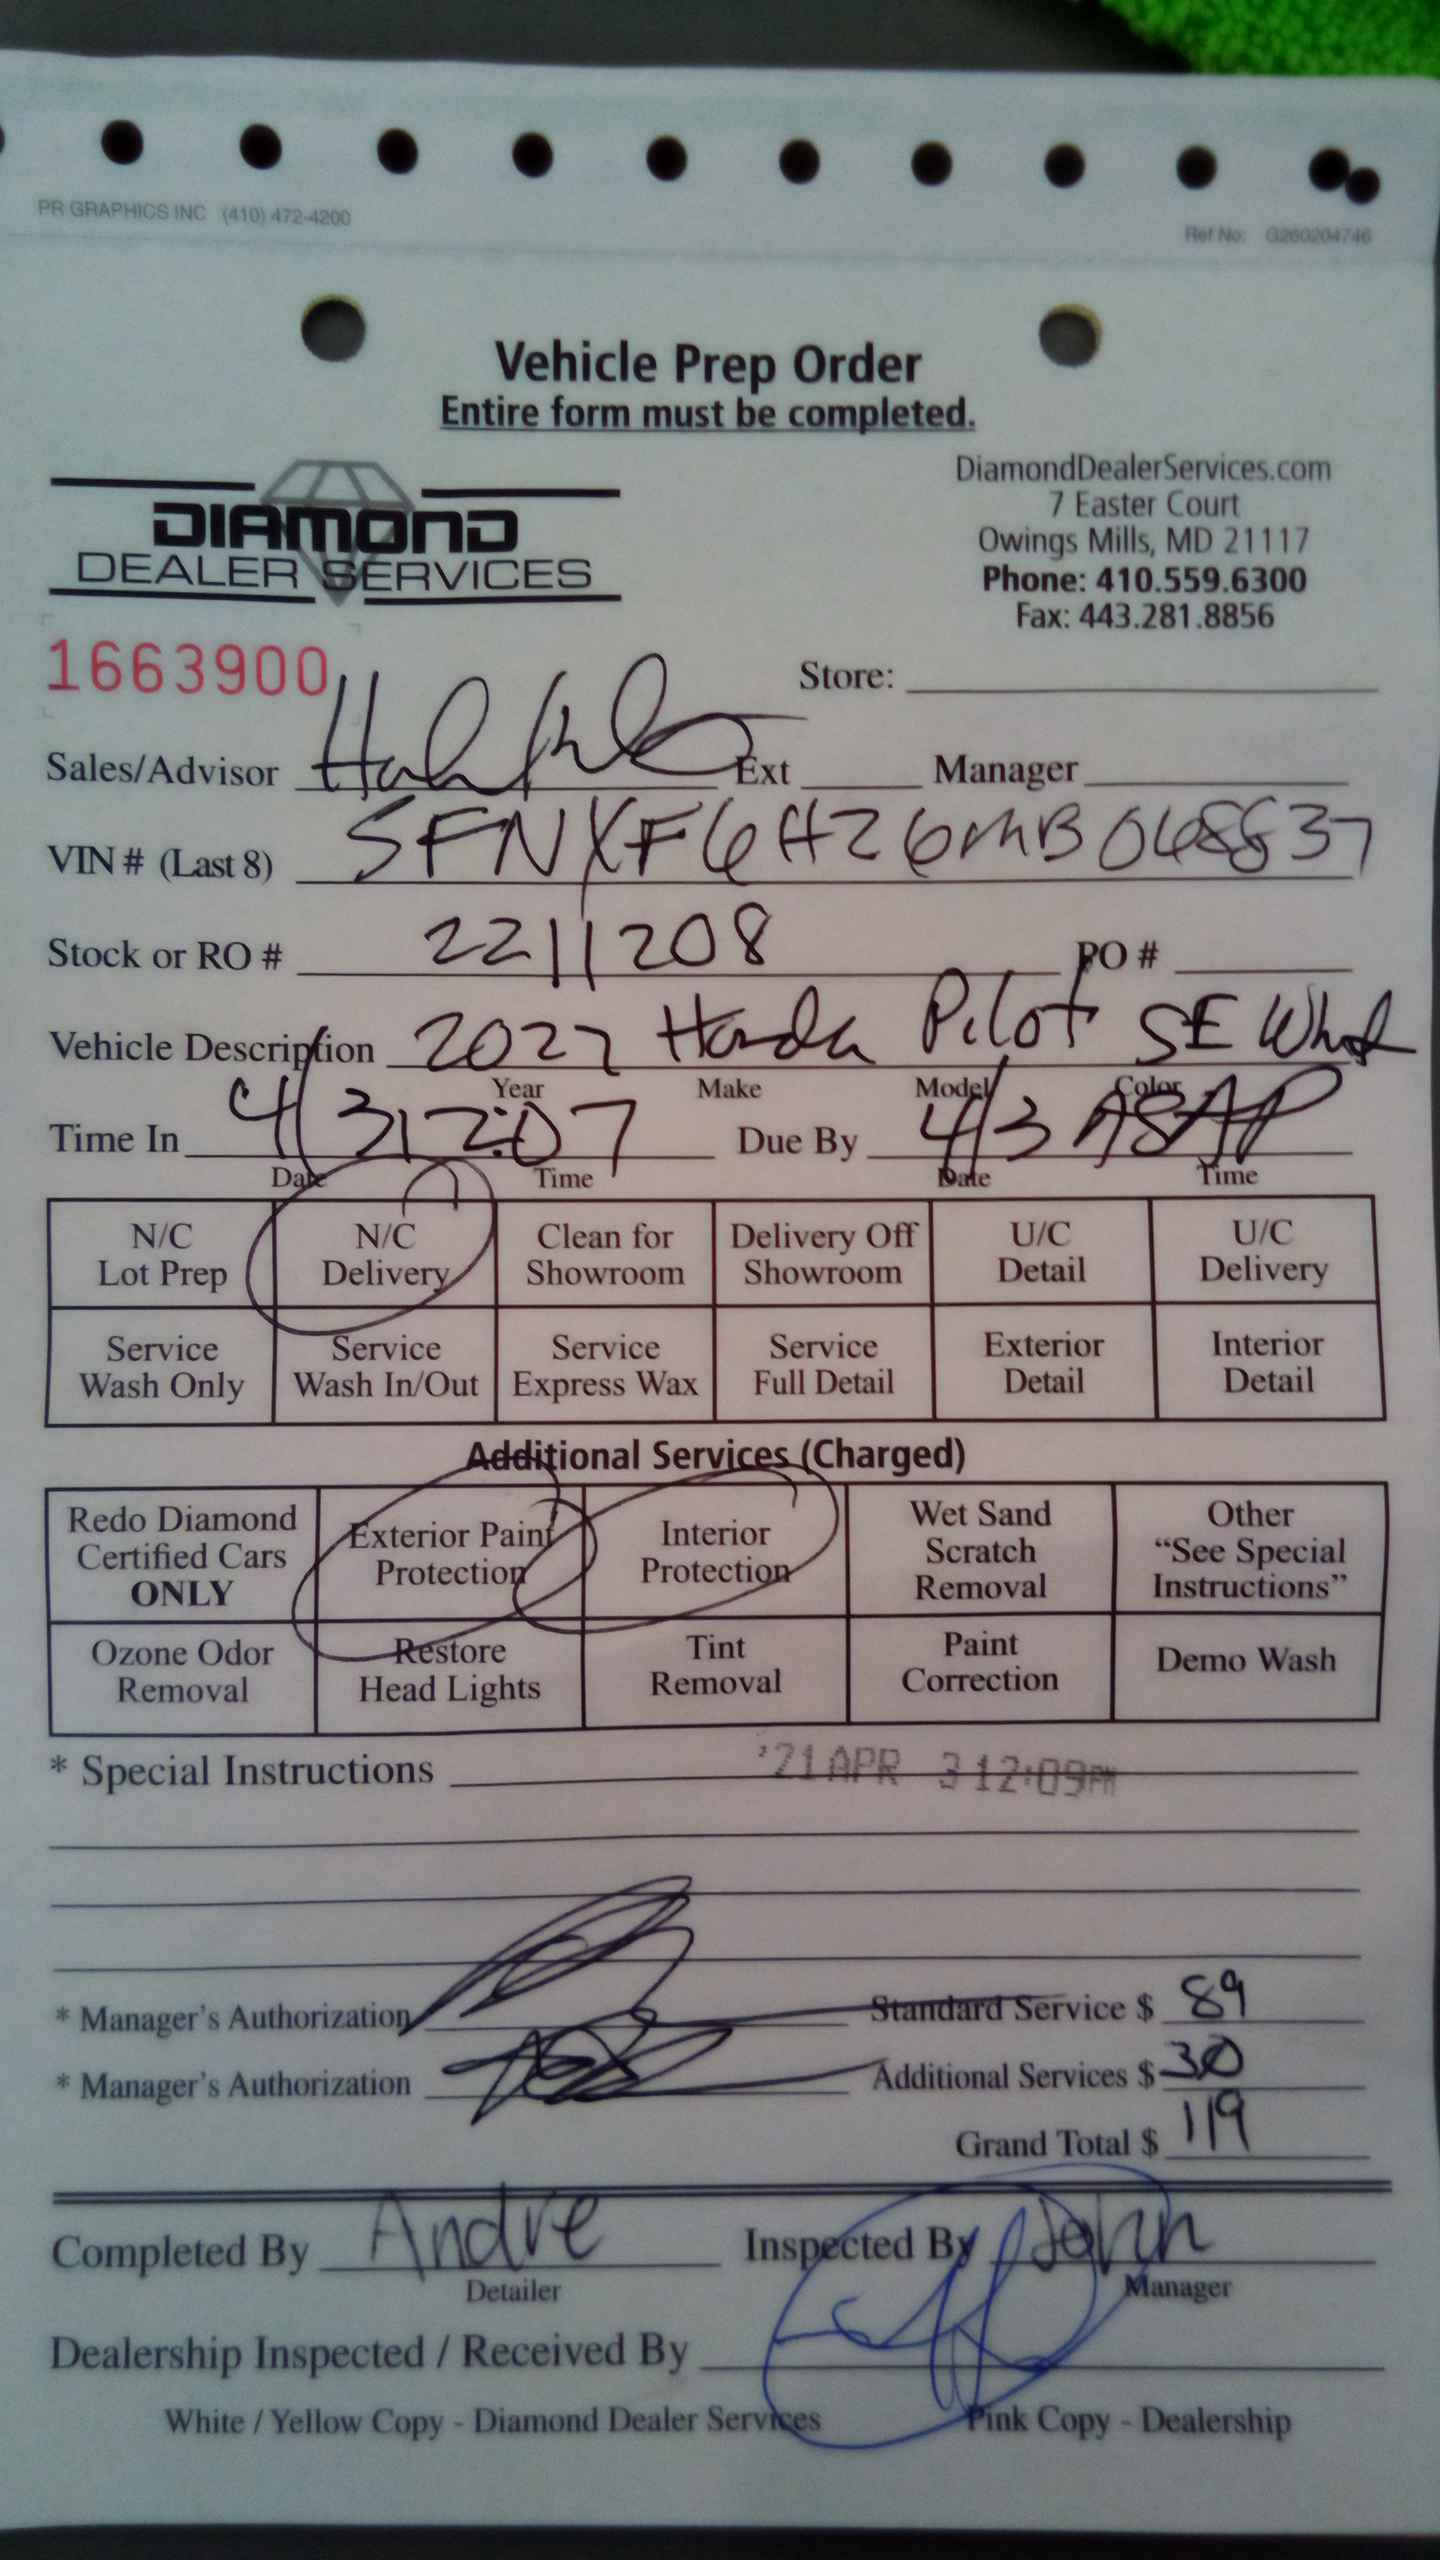 PR GRAPHICS INC (410) 472-4200
Ref No: G260204746
Vehicle Prep Order
Entire form must be completed.
DIAMOND
DEALER SERVICES
DiamondDealerServices.com
7 Easter Court
Owings Mills, MD 21117
Phone: 410.559.6300
Fax: 443.281.8856
1663900
Store:
Sales/Advisor Ext Manager
VIN # (Last 8) 5FNYF6H26MB068837
Stock or RO # 2211208 PO #
Vehicle Description 2022 Honda Pilot SE
Year Make Model Color
Time In 4/3 12:07 Due By 4/3 ASAP
Date Time Date Time
N/C Lot Prep N/C Delivery Clean for Showroom Delivery Off Showroom U/C Detail U/C Delivery
Service Wash Only Service Wash In/Out Service Express Wax Service Full Detail Exterior Detail Interior Detail
Additional Services (Charged)
Redo Diamond Certified Cars ONLY Exterior Paint Protection Interior Protection Wet Sand Scratch Removal Other "See Special Instructions"
Ozone Odor Removal Restore Head Lights Tint Removal Paint Correction Demo Wash
* Special Instructions '21 APR 3 12:09PM
* Manager's Authorization Standard Service $ 89
* Manager's Authorization Additional Services $ 30
Grand Total $ 119
Completed By Andre Inspected By John
Detailer Manager
Dealership Inspected / Received By
White / Yellow Copy - Diamond Dealer Services Pink Copy - Dealership